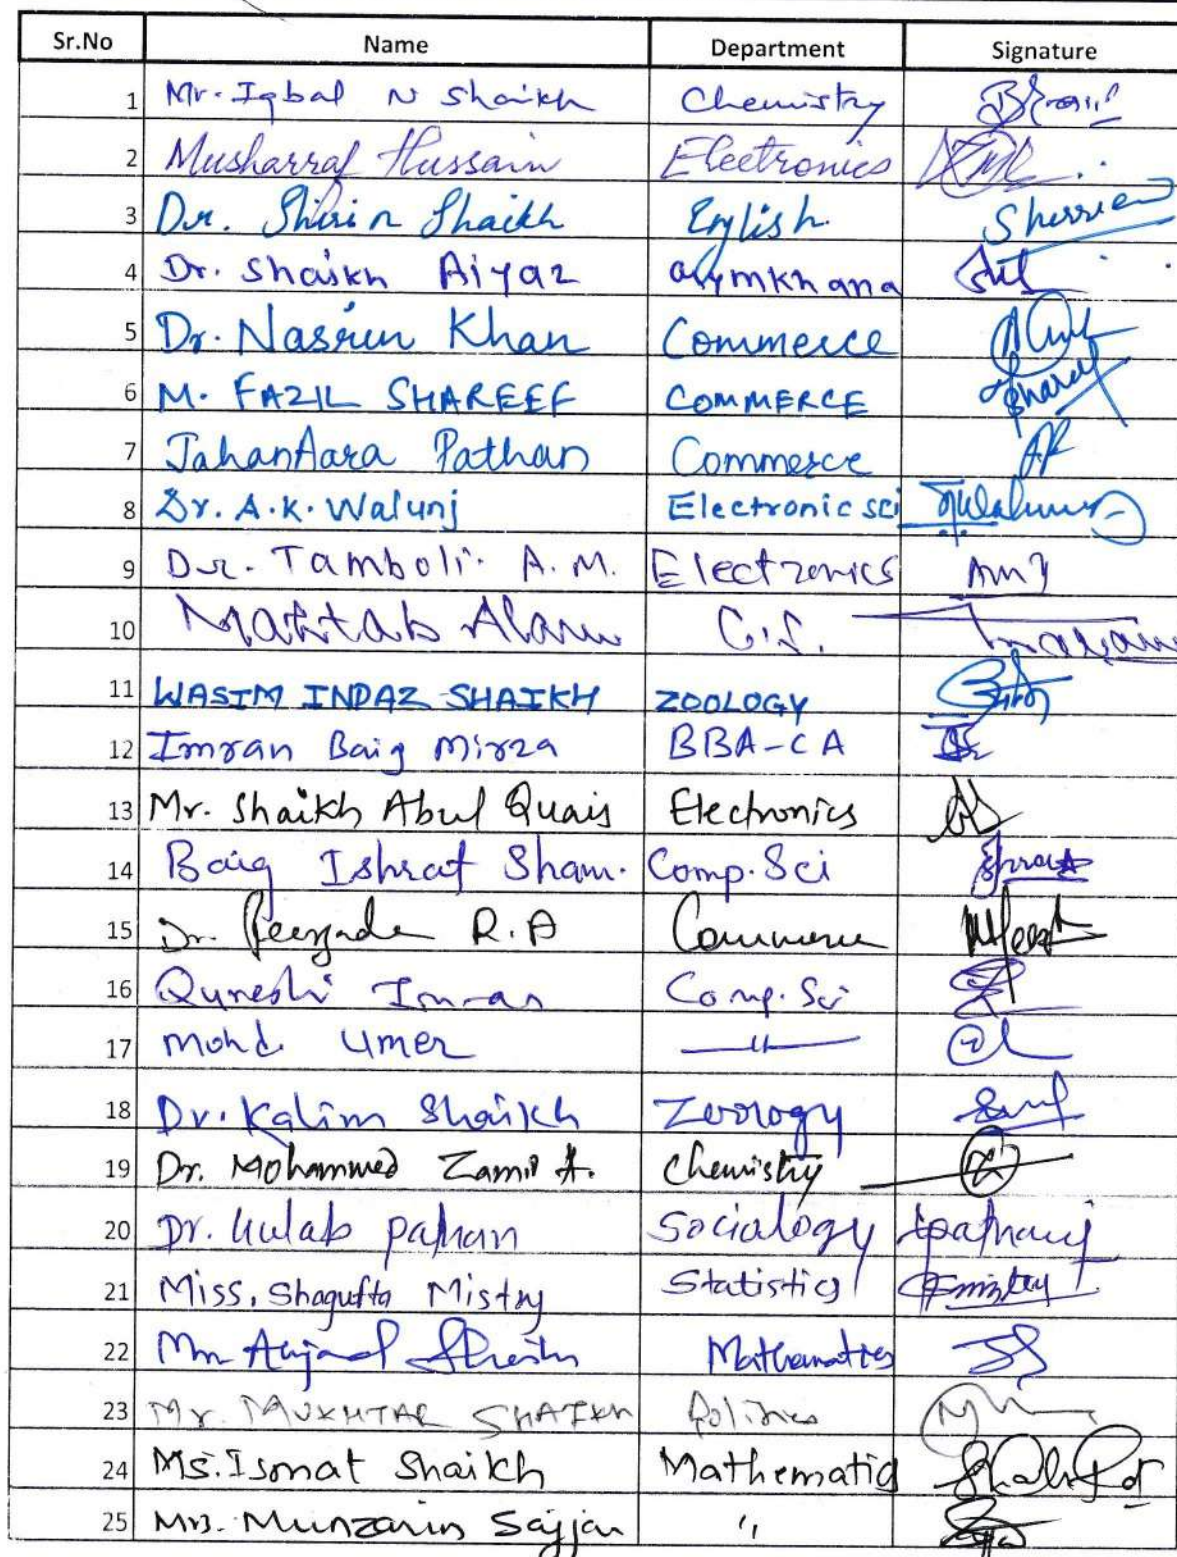 Sr.No Name Department Signature
1 Mr. Iqbal N Shaikh Chemistry
2 Musharraf Hussain Electronics
3 Dr. Shirin Shaikh English Sherrien
4 Dr. Shaikh Aiyaz Gymkhana
5 Dr. Nasrin Khan Commerce
6 M. FAZIL SHAREEF COMMERCE
7 JahanAara Pathan Commerce
8 Dr. A.K. Walunj Electronic sci
9 Dr. Tamboli. A.M. Electronics
10 Mahtab Alam C.S.
11 WASIM INDAZ SHAIKH ZOOLOGY
12 Imran Baig Mirza BBA-CA
13 Mr. Shaikh Abul Quais Electronics
14 Baig Ishrat Sham. Comp. Sci
15 Dr. Peerzade R.A Commerce
16 Qureshi Imran Comp. Sci
17 Mohd. Umer —〃—
18 Dr. Kalim Shaikh Zoology
19 Dr. Mohammed Zamir A. Chemistry
20 Dr. Gulab pathan Socialogy
21 Miss. Shagufta Mistry Statistics
22 Mr Amjad Shaikh Mathematics
23 Mr. MUKHTAR SHAIKH Politics
24 Ms. Ismat Shaikh Mathematics
25 Mrs. Munzarin Sajjan 〃